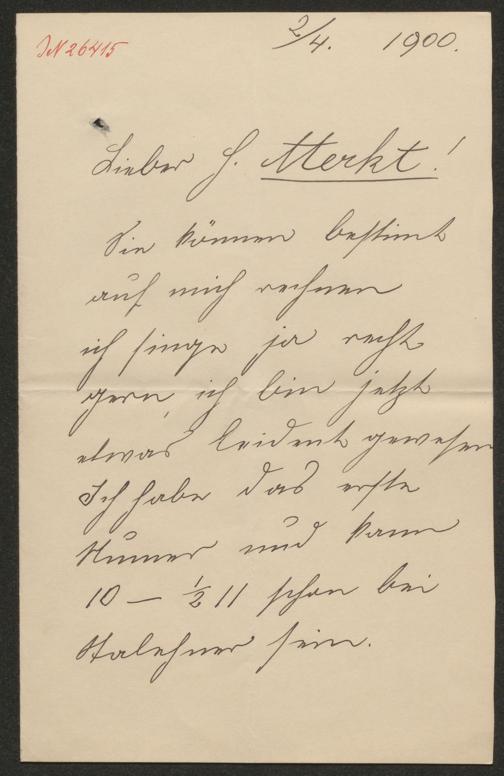 JN 26415
2/4. 1900.
Lieber H. Merkt!
Sie können bestimt
auf mich rechnen
ich singe ja recht
gern, ich bin jetzt
etwas leident gewesen
Ich habe das erste
Numer und kann
10 — ½ 11 schon bei
Stalehner sein.